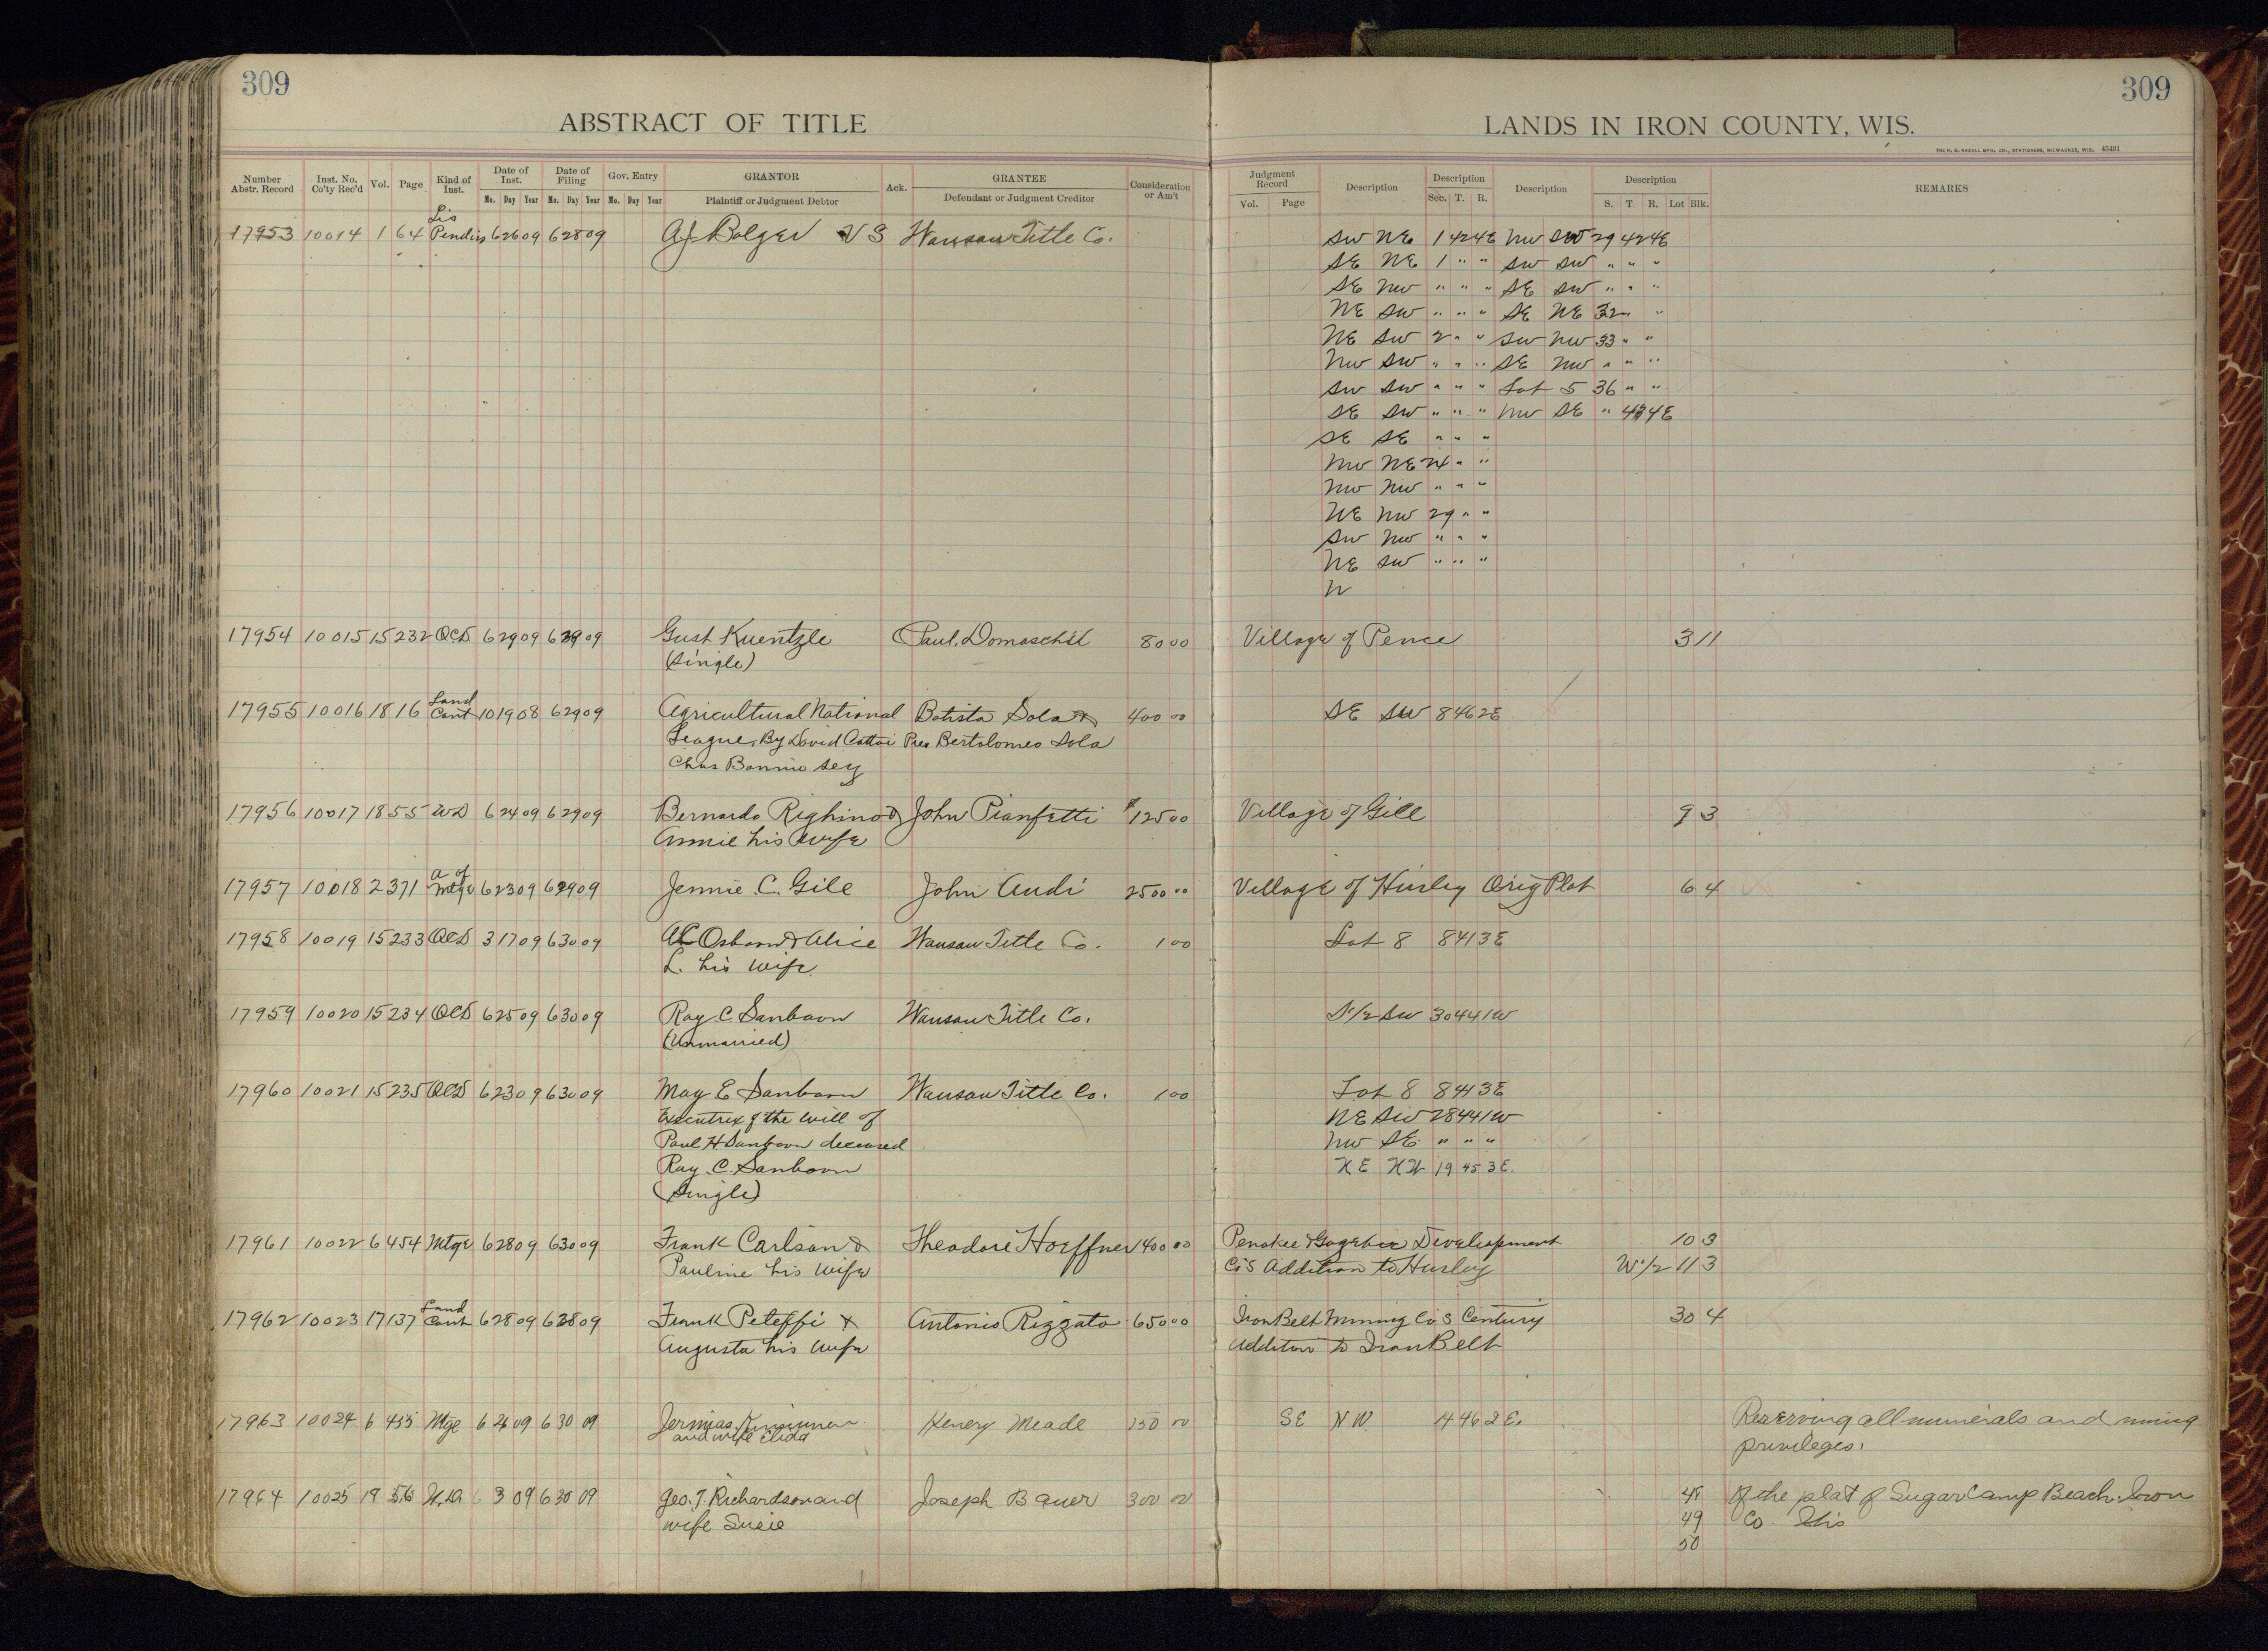 309
309
ABSTRACT OF TITLE
LANDS IN IRON COUNTY, WIS.
THE H. H. RAZALL MFG. CO., STATIONERS, MILWAUKEE, WIS. 45431
Number Abstr. Record Inst. No. Co'ty Rec'd Vol. Page Kind of Inst. Date of Inst. Mo. Day Year Date of Filing Mo. Day Year Gov. Entry Mo. Day Year GRANTOR Plaintiff or Judgment Debtor Ack. GRANTEE Defendant or Judgment Creditor Consideration or Am't
Judgment Record Vol. Page Description Description Sec. T. R. Description Description S. T. R. Lot Blk. REMARKS
17953 10014 1 64 Lis Pendis 6 26 09 6 28 09 AJ Bolger VS Wausau Title Co. SW NE 1 42 4E NW SW 29 42 4E
SE NE 1 " " SW SW " " "
SE NW " " " SE SW " " "
NE SW " " " SE NE 32 " "
NE SW 2 " " SW NW 33 " "
NW SW " " " SE NW " " "
SW SW " " " Lot 5 36 " "
SE SW " " " NW SE " 43 4E
SE SE " " "
NW NE 24 " "
NW NW " " "
NE NW 29 " "
SW NW " " "
NE SW " " "
N
17954 10015 15 232 QCD 6 29 09 6 29 09 Gust Kuentzle Paul Domaschil 80 00 Village of Pence 3 11
(single)
17955 10016 18 16 Land Cont 10 19 08 6 29 09 Agricultural National Batista Sola & 400 00 SE SW 8 46 2E
League, By David Cattai Pres Bertolomeo Sola
Chas Bonnie Secy
17956 10017 18 55 WD 6 24 09 6 29 09 Bernardo Righino & John Pianfetti $125 00 Village of Gile 9 3
Annie his wife
17957 10018 2 371 A of Mtge 6 23 09 6 29 09 Jennie C. Gile John Audi 2500 00 Village of Hurley Orig Plat 6 4
17958 10019 15 233 QCD 3 17 09 6 30 09 AC Osborn & Alice Wausau Title Co. 1 00 Lot 8 8 41 3E
L. his wife
17959 10020 15 234 QCD 6 25 09 6 30 09 Ray C. Sanborn Wausau Title Co. N 1/2 SW 30 44 1W
(Unmarried)
17960 10021 15 235 QCD 6 23 09 6 30 09 May E Sanborn Wausau Title Co. 1 00 Lot 8 8 41 3E
Executrix of the will of NE SW 28 44 1W
Paul H Sanborn deceased NW SE " " "
Ray C. Sanborn NE NW 19 45 3E.
(Single)
17961 10022 6 454 Mtge 6 28 09 6 30 09 Frank Carlson & Theodore Hoeffner 400 00 Penokee & Gogebic Development 10 3
Pauline his wife Co's Addition to Hurley W 1/2 11 3
17962 10023 17 137 Land Cont 6 28 09 6 28 09 Frank Peteffi & Antonio Rizzato 650 00 Iron Belt Mining Co's Century 30 4
Augusta his wife Addition to Iron Belt
17963 10024 6 455 Mtge 6 26 09 6 30 09 Jermias Henery Meade 150 00 SE NW 14 46 2E. Reserving all minerals and mining
and wife Elida privileges.
17964 10025 19 56 W.D. 6 3 09 6 30 09 Geo. T. Richardson and Joseph Bauer 300 00 48 Of the plat of Sugar Camp Beach Iron
wife Susie 49 Co. Wis
50